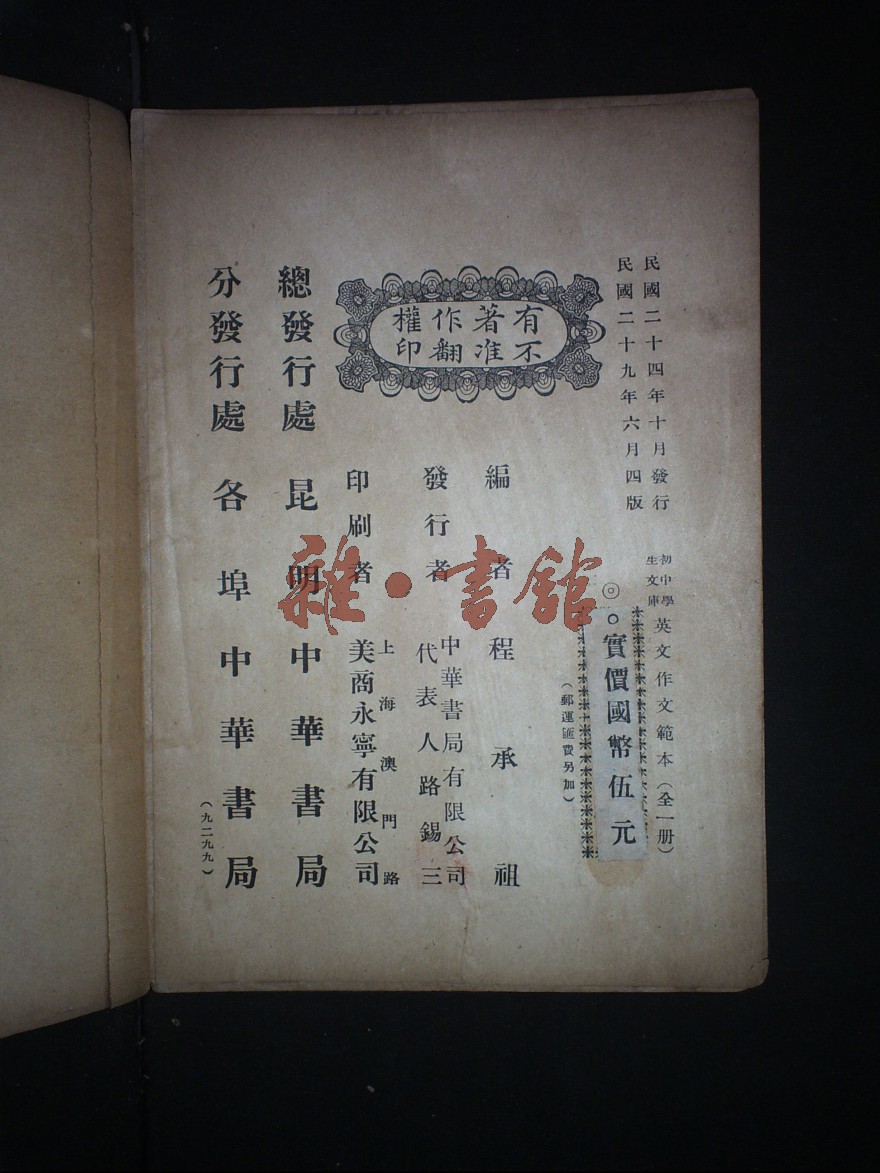 民國二十四年十月發行
民國二十九年六月四版
初中學
生文庫
英文作文範本（全一册）
◎
。實價國幣伍元
（郵運匯費另加）
有著作權
不准翻印
編者 程承祖
發行者 中華書局有限公司
代表人路錫三
印刷者 上海澳門路
美商永寧有限公司
總發行處 昆明中華書局
分發行處 各埠中華書局
（九二九九）
雜·書館